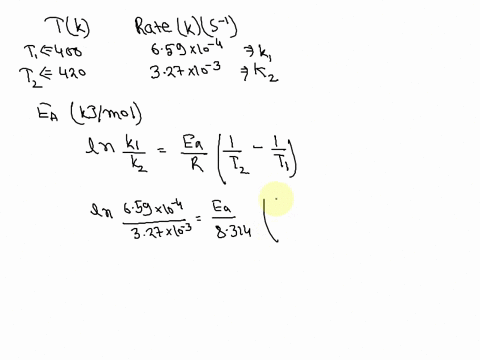 T(k) Rate (k)(s⁻¹)
T₁ ⇐ 400 6.59×10⁻⁴ ⇒ k₁
T₂ ⇐ 420 3.27×10⁻³ ⇒ K₂
EA (kJ/mol)
ln k₁/k₂ = Ea/R (1/T₂ - 1/T₁)
ln 6.59×10⁻⁴/3.27×10⁻³ = Ea/8.324 (